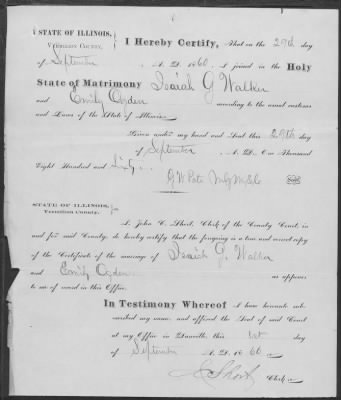 STATE OF ILLINOIS,
VERMILION COUNTY.
I Hereby Certify, That on the 29th day
of September A. D. 1860, I joined in the Holy
State of Matrimony Isaiah G Walker
and Emily Ogden according to the usual customs
and Laws of the State of Illinois.
Given under my hand and Seal this 29th day
of September A. D. One Thousand
Eight Hundred and Sixty.
G W
STATE OF ILLINOIS,
Vermilion County.
I, John C. Short, Clerk of the County Court, in
and for said County, do hereby certify that the foregoing is a true and correct copy
of the Certificate of the marriage of Isaiah G. Walker
and Emily Ogden as appears
to me of record in this Office.
In Testimony Whereof I have hereunto sub-
scribed my name, and affixed the Seal of said Court
at my Office in Danville, this 1st day
of September A. D. 1866
Short Clerk